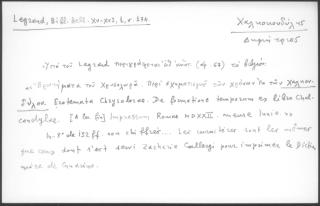 Legrand, Bibl. hell. XV-XVI, I, σ. 174.
Χαλκοκονδύλης
Δημήτριος
Ὑπὸ τοῦ Legrand περιγράφεται τὸ βιβλίον
Ἐρωτήματα τοῦ Χρυσολωρᾶ. Περὶ σχηματισμοῦ τῶν χρόνων ἐκ τῶν Χαλκον-
δύλου. Erotemata Chrysolorae. De formatione temporum ex libro Chal-
condylae. [A la fin] Impressum Romae MDXXII. mense
de 152 ff. non chiffrés... Les caractères sont les mêmes
que ceux dont s'est servi Zacharie Calliergi pour imprimer le Dictio
naire de Guarino.